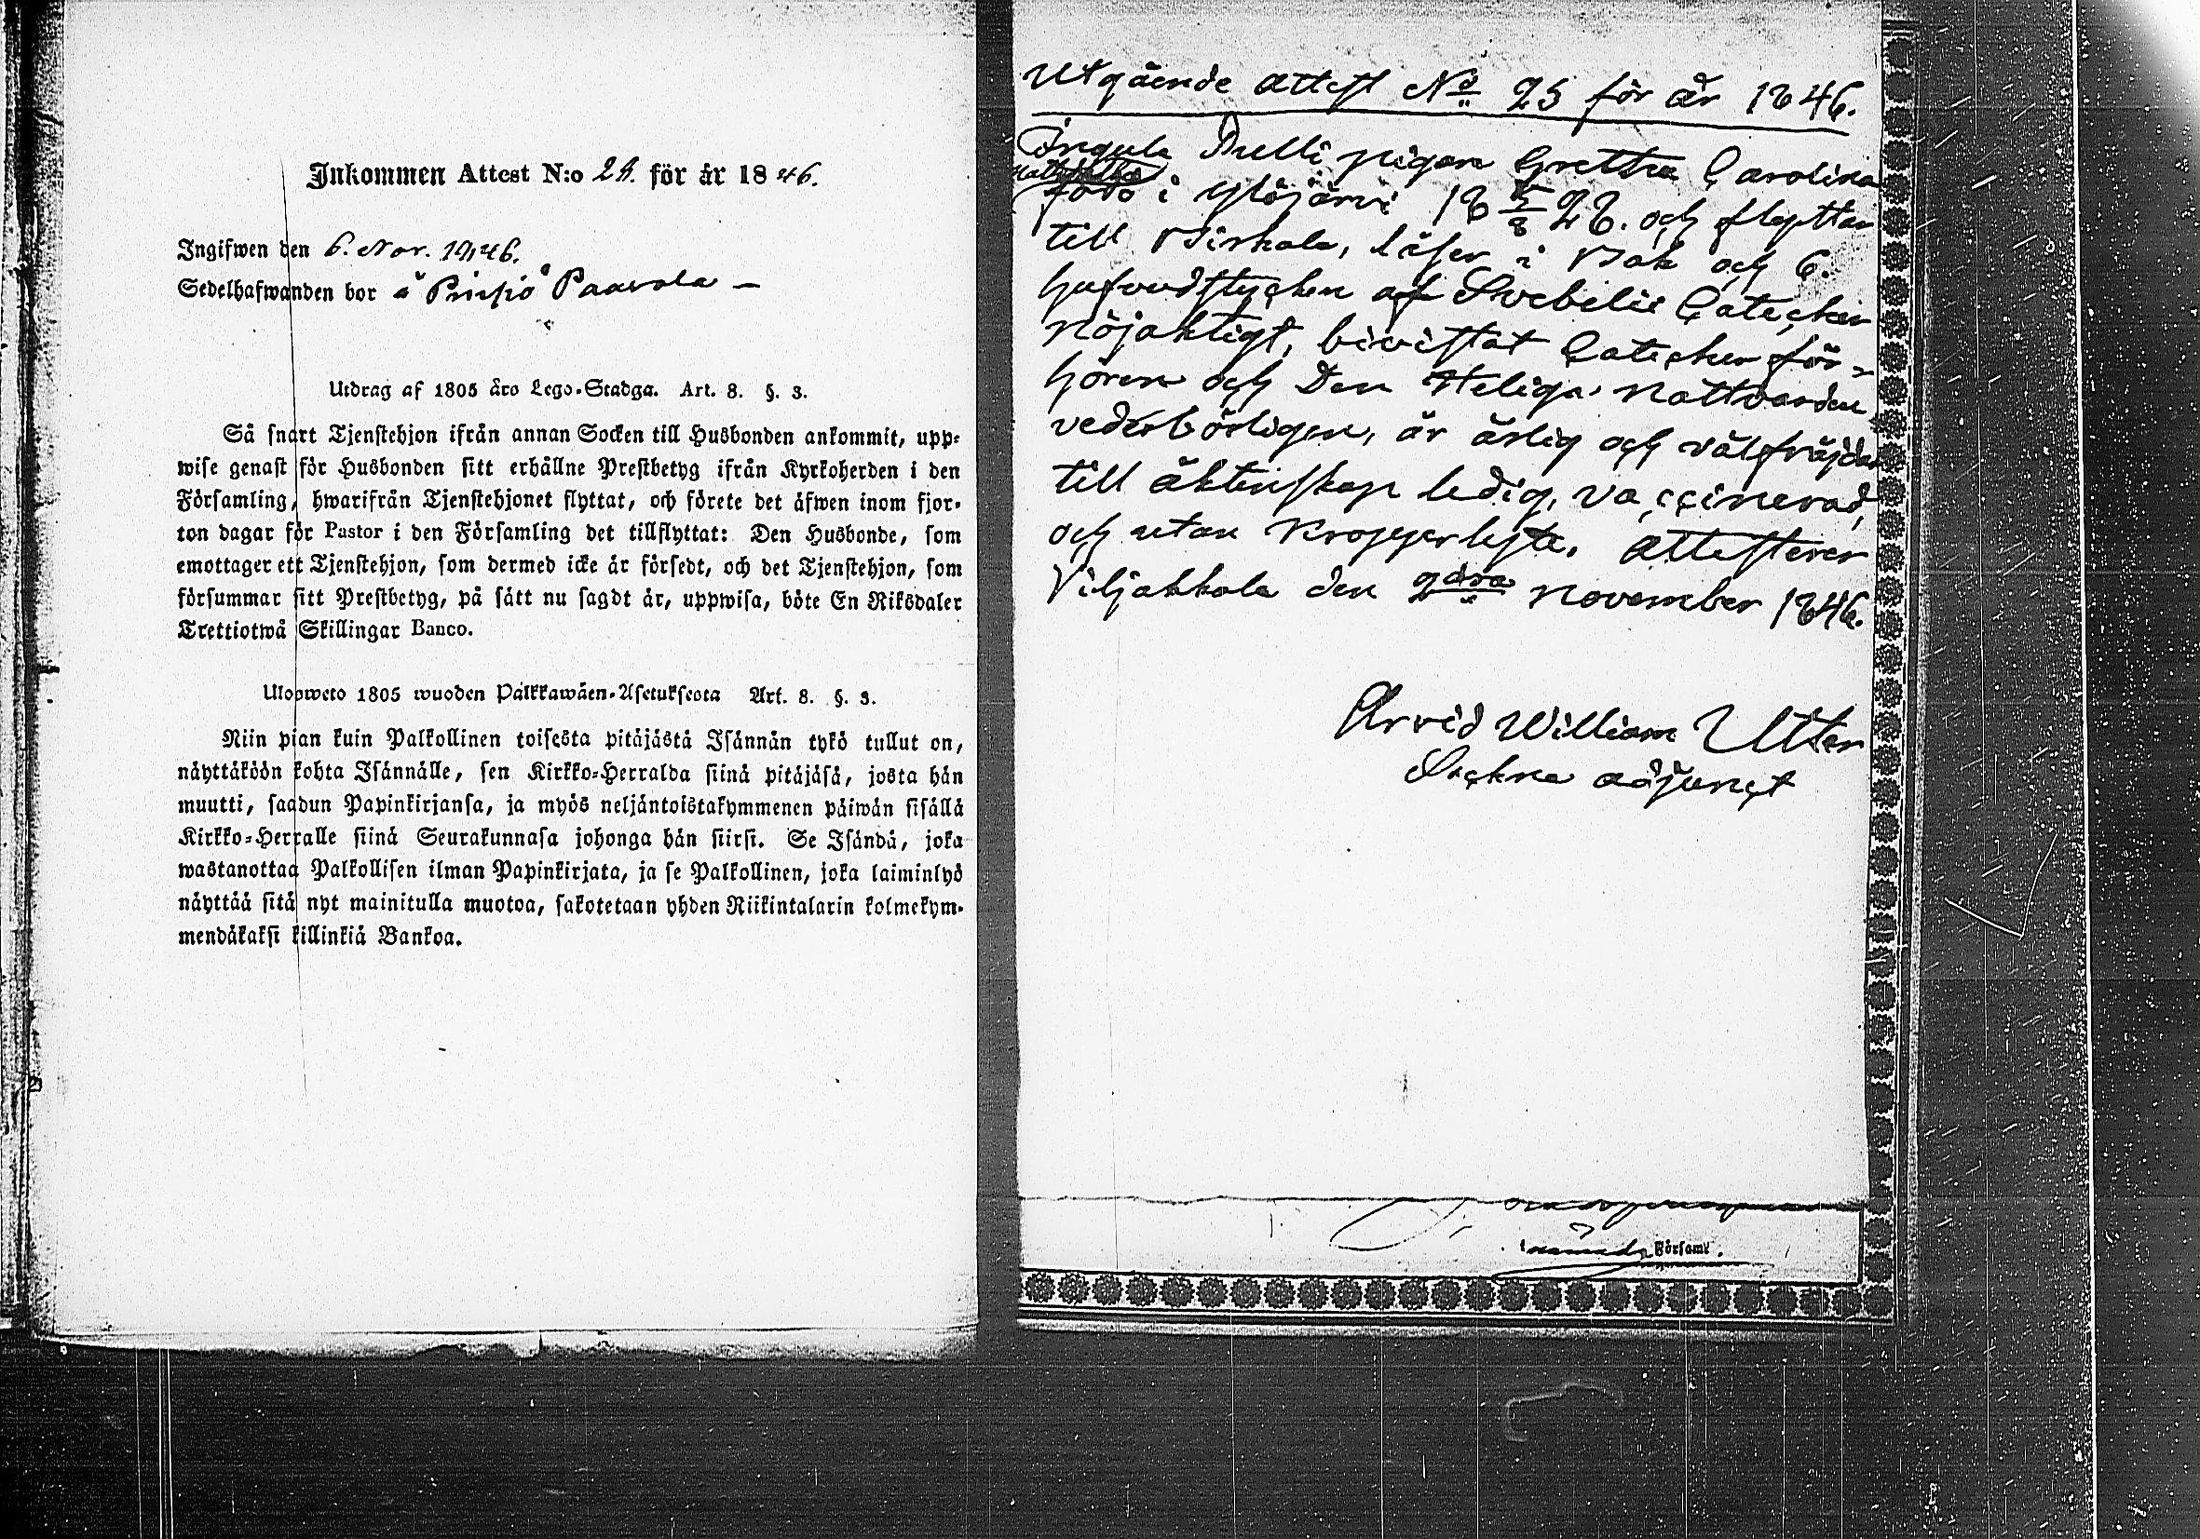 Inkommen Attest N:o 24. för år 1846.
Ingifwen den 6. Nov. 1846.
Sedelhafwanden bor å Pinsiö Paavola –
Utdrag af 1805 års Lego-Stadga. Art. 8. §. 3.
Så snart Tjenstehjon ifrån annan Socken till Husbonden ankommit, upp-
wise genast för Husbonden sitt erhållne Prestbetyg ifrån Kyrkoherden i den
Församling, hwarifrån Tjenstehjonet flyttat, och förete det äfwen inom fjor-
ton dagar för Pastor i den Församling det tillflyttat: Den Husbonde, som
emottager ett Tjenstehjon, som dermed icke är försedt, och det Tjenstehjon, som
försummar sitt Prestbetyg, på sätt nu sagdt är, uppwisa, böte En Riksdaler
Trettiotwå Skillingar Banco.
Ulosweto 1805 wuoden Palkkawäen-Asetuksesta Art. 8. §. 3.
Niin pian kuin Palkollinen toisesta pitäjästä Isännän tykö tullut on,
näyttäköön kohta Isännälle, sen Kirkko-Herralda siinä pitäjäsä, josta hän
muutti, saadun Papinkirjansa, ja myös neljäntoistakymmenen päiwän sisällä
Kirkko-Herralle siinä Seurakunnasa johonga hän siirsi. Se Isändä, joka
wastanottaa Palkollisen ilman Papinkirjata, ja se Palkollinen, joka laiminlyö
näyttää sitä nyt mainitulla muotoa, sakotetaan yhden Riikintalarin kolmekym-
mendäkaksi killinkiä Bankoa.
Utgående attest No 25 för år 1846.
Ingula Melli pigan Gretha Carolina
född i Ylöjärvi 18 5/8 28. och flyttar
till Birkala, läser i Bok och 6.
hufvudstycken af Svebilii Cateches
nöjaktigt, bivistat Catechesför-
hören och Den Heliga Nattvarden
vederbörligen, är ärlig och välfräjdad
till äktenskap ledig, vaccinerad,
och utan Kroppslyte. attesterar
Viljakkala den 2dra November 1846.
Arvid William Utter
Sockne adjunct
Församl.